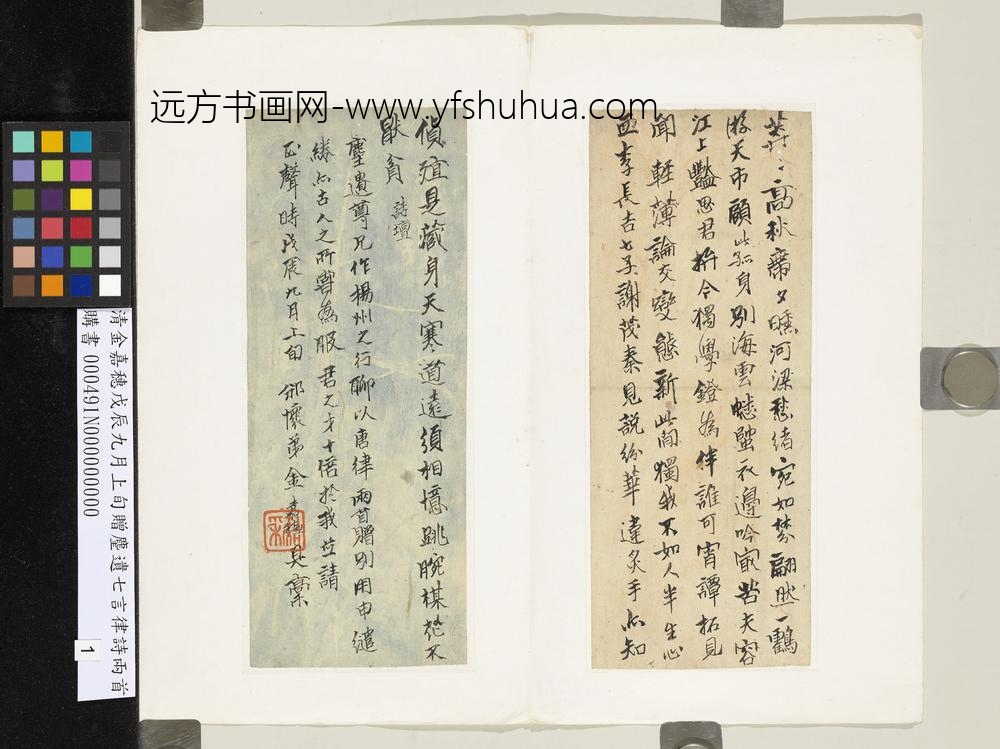 远方书画网-www.yfshuhua.com
莽〻高秋带夕曛河梁愁绪宛如棼翩然一鶴
游天市顧此孤身別海雲蟋蟀秋邊吟最苦夫容
江上豔思君擠今獨學鐙為伴誰可宵譚拓見
聞 輕薄論交變態新此間獨我不如人半生心
血李長吉七子謝茂秦見說紛華違炙手亦知
償殖是藏身天寒道遠須相憶跳腕棋花不
猒貪 詩壇
塵遺尊兄作揚州之行聊以唐律兩首贈別用申繾
綣亦古人之所嘗為服君之才十倍於我並請
正聲時戊辰九月上旬 邠懷弟金嘉穗具稾
清金嘉穗戊辰九月上旬贈塵遺七言律詩兩首
購書 000491N000000000
1